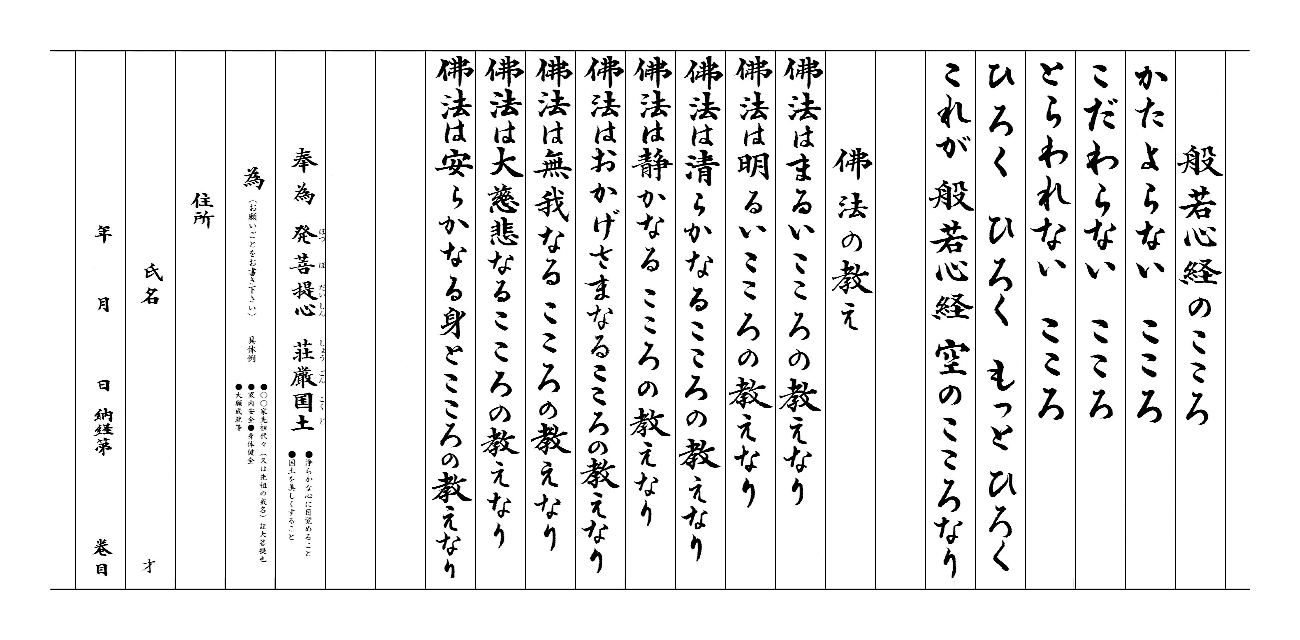 般若心経のこころ
かたよらない　こころ
こだわらない　こころ
とらわれない　こころ
ひろく　ひろく　もっとひろく
これが　般若心経　空のこころなり
佛法の教え
佛法はまるいこころの教えなり
佛法は明るいこころの教えなり
佛法は清らかなるこころの教えなり
佛法は静かなるこころの教えなり
佛法はおかげさまなるこころの教えなり
佛法は無我なるこころの教えなり
佛法は大慈悲なるこころの教えなり
佛法は安らかなる身とこころの教えなり
奉為　発菩提心　荘厳国土
ほつ　ぼ　だいしん　しょう　ごん　こく　ど
●浄らかな心に目覚めること
●国土を美しくすること
為（お願いごとをお書き下さい）　具体例
●〇〇家先祖代々（又は先祖の戒名）証大菩提也
●家内安全●身体健全
●大願成就等
住所
氏名　才
年　月　日　納経第　巻目